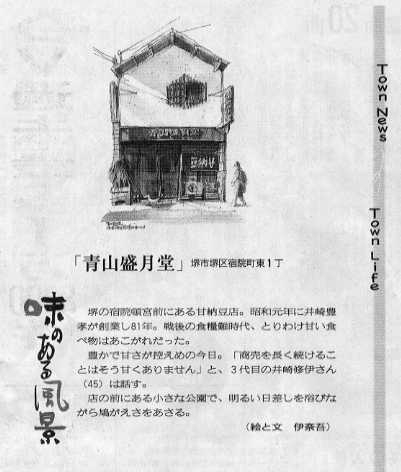 Town News
Town Life
「青山盛月堂」堺市堺区宿院町東1丁
味のある風景
堺の宿院頓宮前にある甘納豆店。昭和元年に井崎豊
孝が創業し81年。戦後の食糧難時代、とりわけ甘い食
べ物はあこがれだった。
豊かで甘さが控えめの今日。「商売を長く続けるこ
とはそう甘くありません」と、3代目の井崎修伊さん
（45）は話す。
店の前にある小さな公園で、明るい日差しを浴びな
がら鳩がえさをあさる。
（絵と文　伊奈吾）